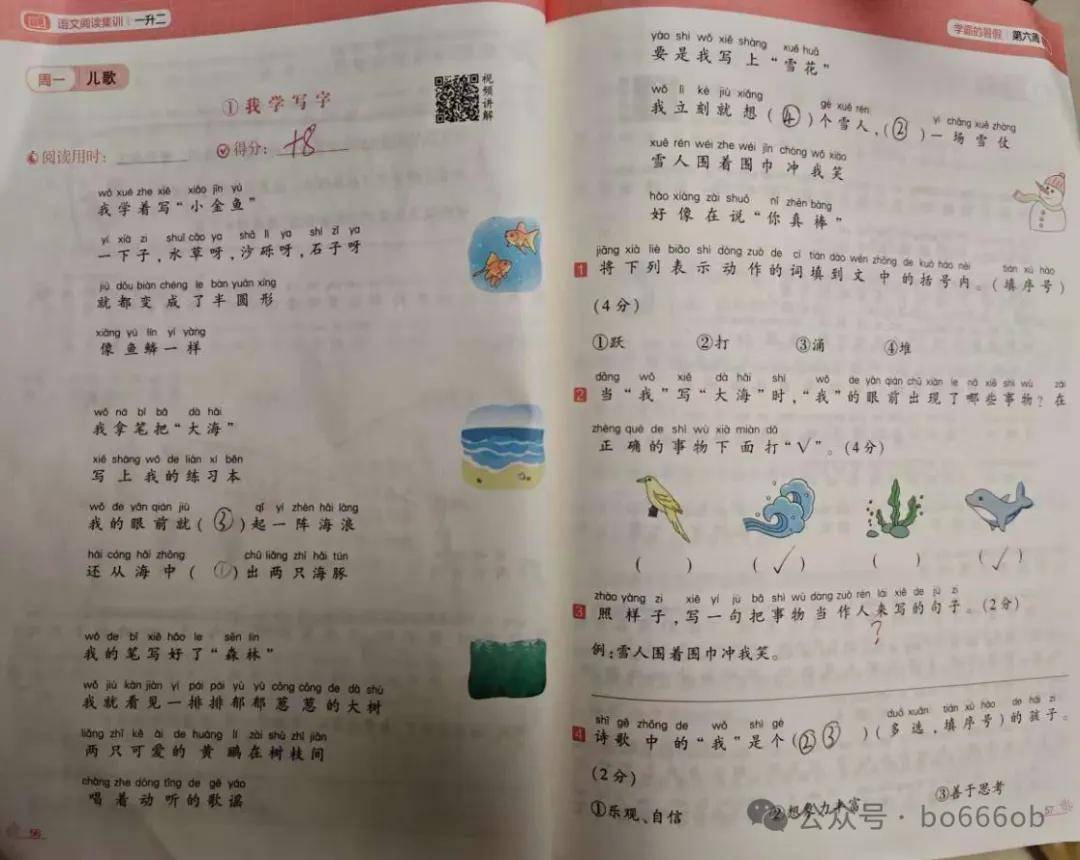 语文阅读集训 一升二
周一 儿歌
①我学写字
视频讲解
阅读用时：
得分： +8
wǒ xué zhe xiě xiǎo jīn yú
我学着写“小金鱼”
yí xià zi shuǐ cǎo ya shā lì ya shí zǐ ya
一下子，水草呀，沙砾呀，石子呀
jiù dōu biàn chéng le bàn yuán xíng
就都变成了半圆形
xiàng yú lín yí yàng
像鱼鳞一样
wǒ ná bǐ bǎ dà hǎi
我拿笔把“大海”
xiě shàng wǒ de liàn xí běn
写上我的练习本
wǒ de yǎn qián jiù qǐ yí zhèn hǎi làng
我的眼前就（③）起一阵海浪
hái cóng hǎi zhōng chū liǎng zhī hǎi tún
还从海中（①）出两只海豚
wǒ de bǐ xiě hǎo le sēn lín
我的笔写好了“森林”
wǒ jiù kàn jiàn yì pái pái yù yù cōng cōng de dà shù
我就看见一排排郁郁葱葱的大树
liǎng zhī kě ài de huáng lí zài shù zhī jiān
两只可爱的黄鹂在树枝间
chàng zhe dòng tīng de gē yáo
唱着动听的歌谣
56
学霸的暑假 第六周
yào shi wǒ xiě shàng xuě huā
要是我写上“雪花”
wǒ lì kè jiù xiǎng gè xuě rén yì chǎng xuě zhàng
我立刻就想（④）个雪人，（②）一场雪仗
xuě rén wéi zhe wéi jīn chòng wǒ xiào
雪人围着围巾冲我笑
hǎo xiàng zài shuō nǐ zhēn bàng
好像在说“你真棒”
jiāng xià liè biǎo shì dòng zuò de cí tián dào wén zhōng de kuò hào nèi tián xù hào
1 将下列表示动作的词填到文中的括号内。（填序号）
（4分）
①跃 ②打 ③涌 ④堆
dāng wǒ xiě dà hǎi shí wǒ de yǎn qián chū xiàn le nǎ xiē shì wù zài
2 当“我”写“大海”时，“我”的眼前出现了哪些事物？在
zhèng què de shì wù xià miàn dǎ
正确的事物下面打“√”。（4分）
（ ） （√） （ ） （√）
zhào yàng zi xiě yí jù bǎ shì wù dàng zuò rén lái xiě de jù zi
3 照样子，写一句把事物当作人来写的句子。（2分）
?
例：雪人围着围巾冲我笑。
shī gē zhōng de wǒ shì gè duō xuǎn tián xù hào de hái zi
4 诗歌中的“我”是个（②③）（多选，填序号）的孩子。
（2分）
①乐观、自信 ②想象力丰富 ③善于思考
57
公众号·bo666ob